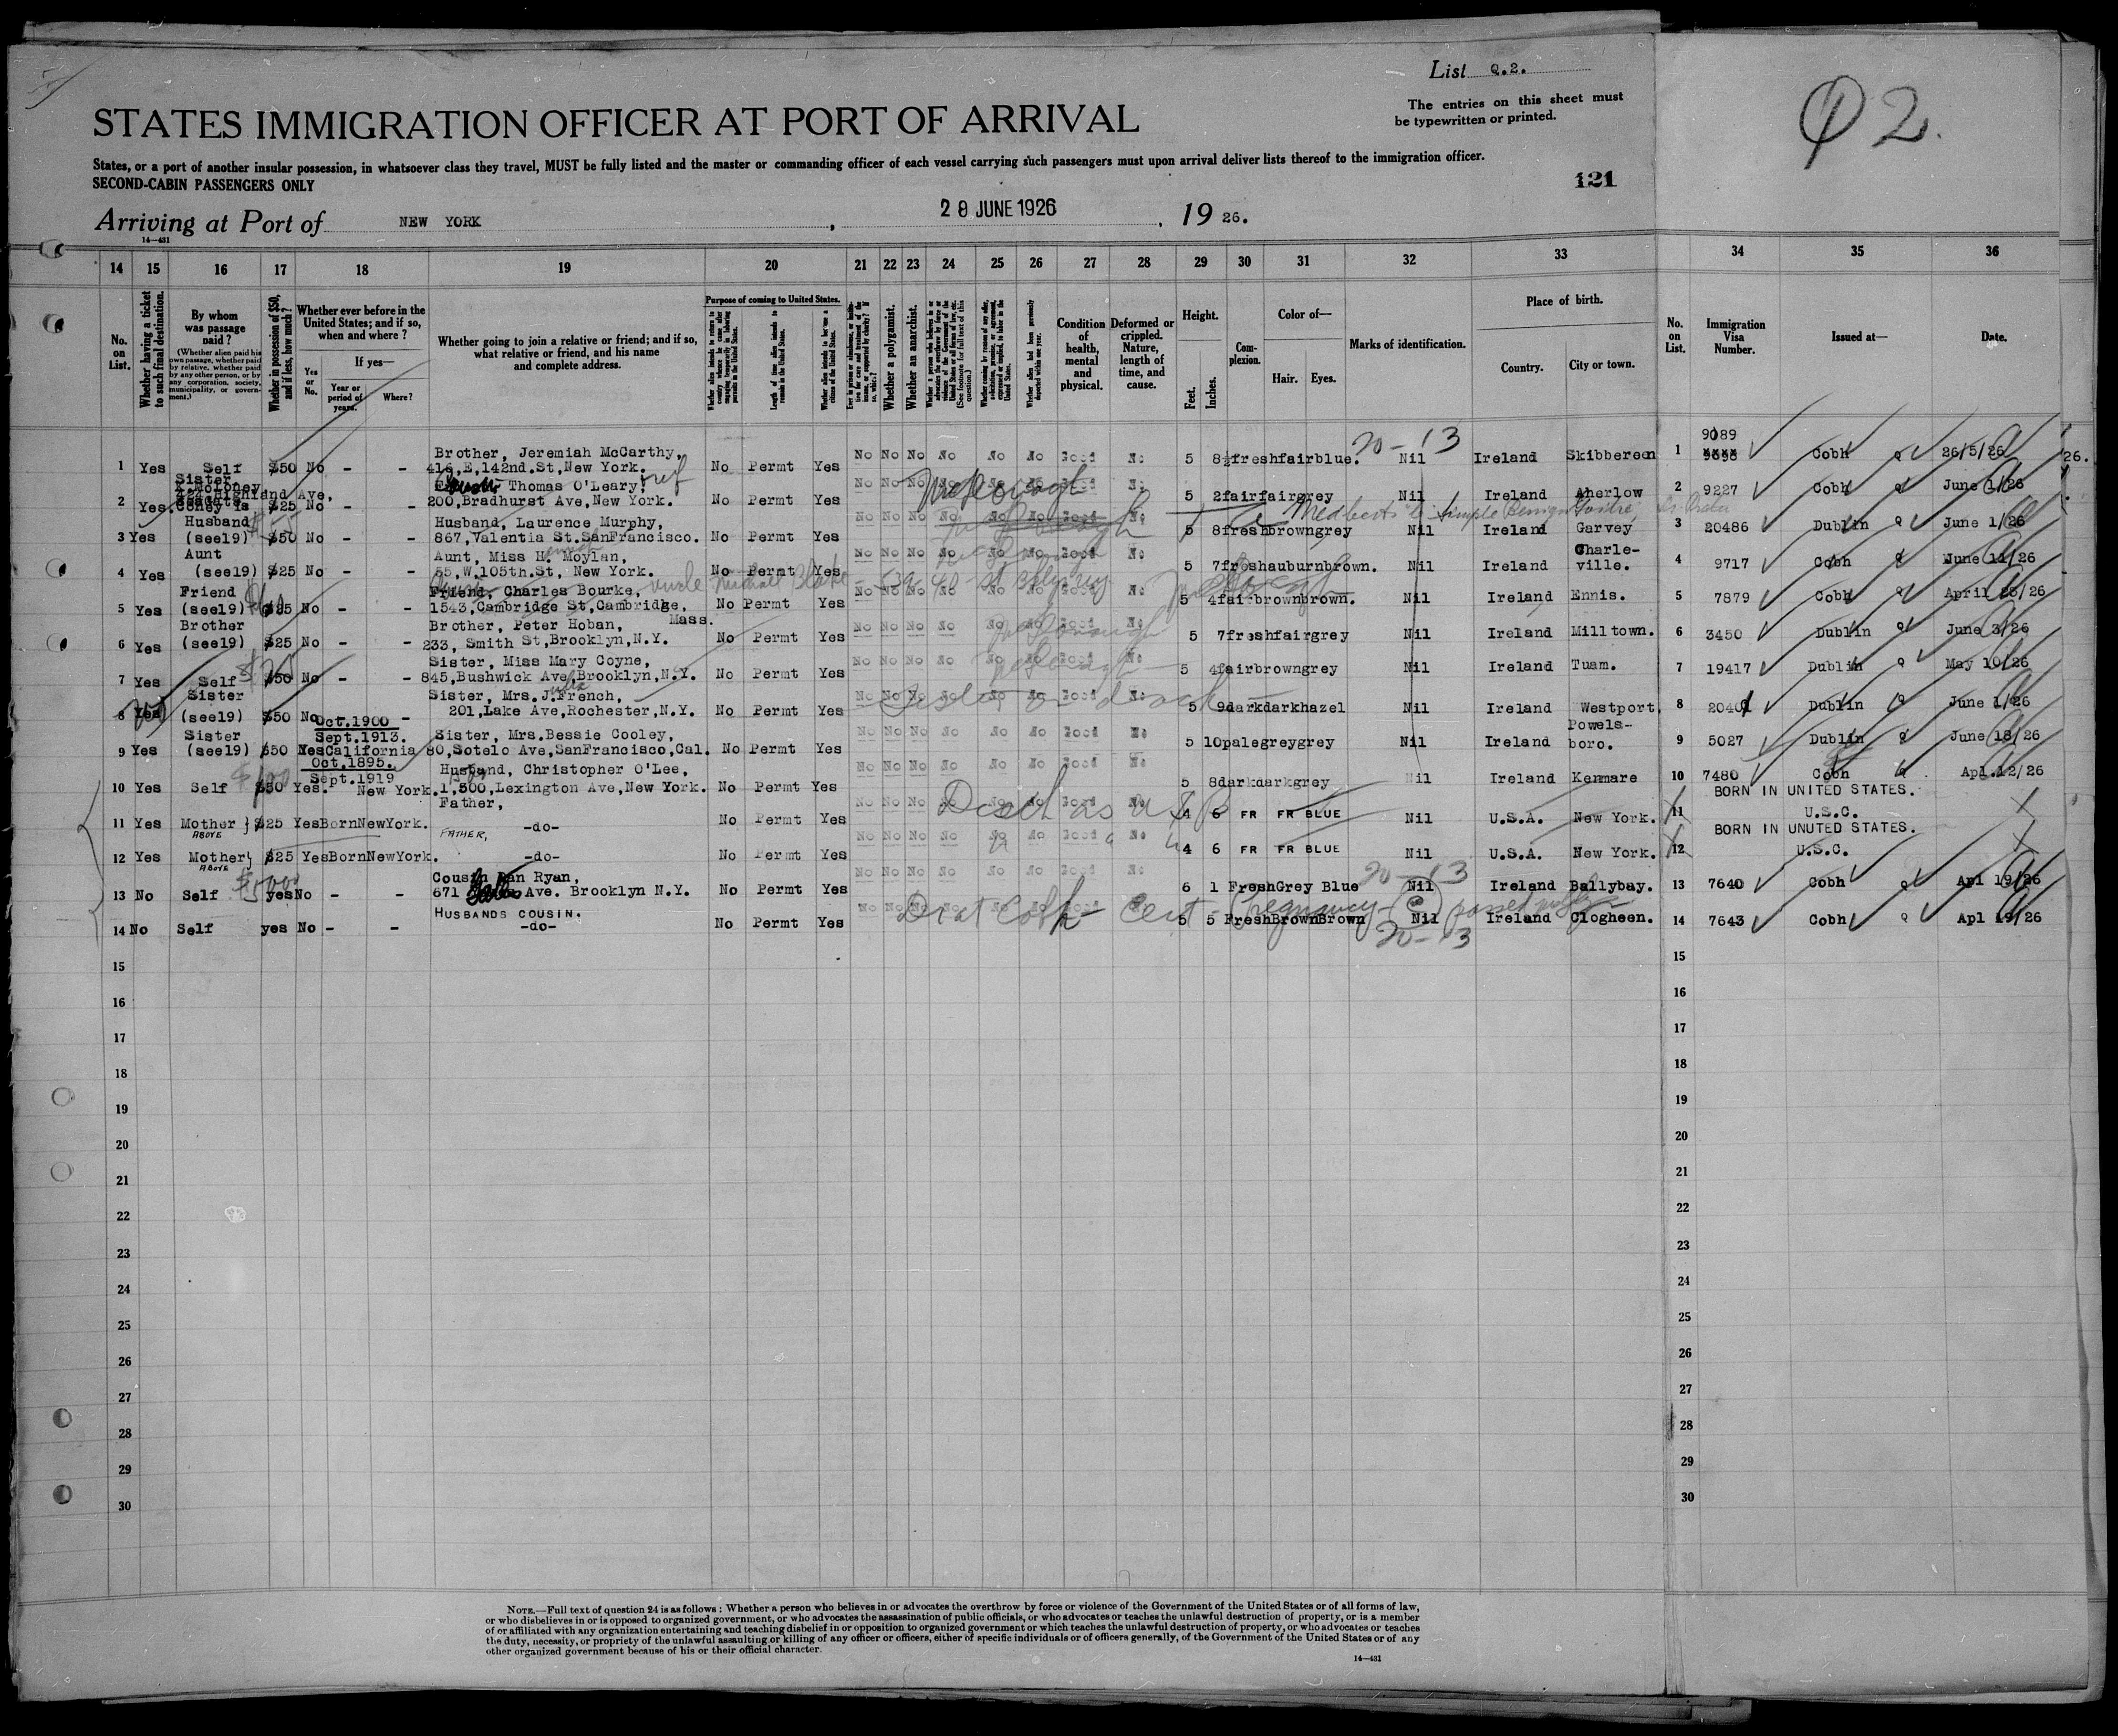 List Q.2.
The entries on this sheet must
be typewritten or printed.
Q2.
STATES IMMIGRATION OFFICER AT PORT OF ARRIVAL
States, or a port of another insular possession, in whatsoever class they travel, MUST be fully listed and the master or commanding officer of each vessel carrying such passengers must upon arrival deliver lists thereof to the immigration officer.
SECOND-CABIN PASSENGERS ONLY
121
Arriving at Port of NEW YORK, 28 JUNE 1926, 19 26.
14—431
14 15 16 17 18 19 20 21 22 23 24 25 26 27 28 29 30 31 32 33 34 35 36
No. on List.
Whether having a ticket to such final destination.
By whom was passage paid?
(Whether alien paid his own passage, whether paid by relative, whether paid by any other person, or by any corporation, society, municipality, or government.)
Whether in possession of $50, and if less, how much?
Whether ever before in the United States; and if so, when and where?
Yes or No.
If yes—
Year or period of years.
Where?
Whether going to join a relative or friend; and if so, what relative or friend, and his name and complete address.
Purpose of coming to United States.
Length of time alien intends to remain in the United States.
Whether alien intends to become a citizen of the United States.
Whether a polygamist.
Whether an anarchist.
(See footnote for full text of this question.)
Whether alien had been previously deported within one year.
Condition of health, mental and physical.
Deformed or crippled. Nature, length of time, and cause.
Height.
Feet.
Inches.
Complexion.
Color of—
Hair.
Eyes.
Marks of identification.
Place of birth.
Country.
City or town.
No. on List.
Immigration Visa Number.
Issued at—
Date.
20-13
Brother, Jeremiah McCarthy, 9089
1 Yes Self $50 No - - 416,E,142nd.St,New York. No Permt Yes No No No No No No Good No 5 8½ fresh fair blue. Nil Ireland Skibbereen 1 Cobh 26/5/26
Sister K.McLoney 424,Highland Ave,
Thomas O'Leary,
2 Yes $25 No - - 200,Bradhurst Ave,New York. No Permt Yes No No No No No No Good No 5 2 fair fair grey Nil Ireland Aherlow 2 9227 Cobh June 1/26
Husband Husband, Laurence Murphy,
3 Yes (see19) $50 No - - 867,Valentia St.SanFrancisco. No Permt Yes No No No No No No Good No 5 8 fresh brown grey Nil Ireland Garvey 3 20486 Dublin June 1/26
Aunt Aunt, Miss H. Moylan, Charle-
4 Yes (see19) $25 No - - 55,W.105th.St, New York. No Permt Yes No No No No No No Good No 5 7 fresh auburn brown. Nil Ireland ville. 4 9717 Cobh June 11/26
Friend Friend, Charles Bourke, uncle Michael Blake
5 Yes (see19) $25 No - - 1543,Cambridge St,Cambridge, Mass. No Permt Yes No No No No No No Good No 5 4 fair brown brown. Nil Ireland Ennis. 5 7879 Cobh April 23/26
Brother Brother, Peter Hoban,
6 Yes (see19) $25 No - - 233, Smith St,Brooklyn,N.Y. No Permt Yes No No No No No No Good No 5 7 fresh fair grey Nil Ireland Milltown. 6 3450 Dublin June 3/26
Sister, Miss Mary Coyne,
7 Yes Self $50 No - - 845,Bushwick Ave,Brooklyn,N.Y. No Permt Yes No No No No No No Good No 5 4 fair brown grey Nil Ireland Tuam. 7 19417 Dublin May 10/26
Sister Sister, Mrs.J.French,
8 Yes (see19) $50 No - 201,Lake Ave,Rochester,N.Y. No Permt Yes No No No No No No Good No 5 9 dark dark hazel Nil Ireland Westport, 8 20401 Dublin June 1/26
Sister Oct.1900 Sept.1913. Sister, Mrs.Bessie Cooley, Powels-
9 Yes (see19) $50 Yes California 80,Sotelo Ave,SanFrancisco,Cal. No Permt Yes No No No No No No Good No 5 10 pale grey grey Nil Ireland boro. 9 5027 Dublin June 18/26
Oct.1895. Sept.1919 Husband, Christopher O'Lee,
10 Yes Self $50 Yes. New York. 1,500,Lexington Ave,New York. No Permt Yes No No No No No No Good No 5 8 dark dark grey Nil Ireland Kenmare 10 7480 Cobh Apl.12/26
Father, BORN IN UNITED STATES.
11 Yes Mother ABOVE $25 Yes Born NewYork. -do- No Permt Yes No No No No No No Good No 4 6 FR FR BLUE Nil U.S.A. New York. 11 U.S.C.
FATHER, BORN IN UNUTED STATES.
12 Yes Mother ABOVE $25 Yes Born NewYork. -do- No Permt Yes No No No No No No Good No 4 6 FR FR BLUE Nil U.S.A. New York. 12 U.S.C.
Cousin Dan Ryan, 20-13
13 No Self yes No - - 671 Ave. Brooklyn N.Y. No Permt Yes No No No No No No Good No 6 1 Fresh Grey Blue Nil Ireland Ballybay. 13 7640 Cobh Apl 19/26
HUSBANDS COUSIN. Cert Pregnancy
14 No Self yes No - - -do- No Permt Yes No No No No No No Good No 5 5 Fresh Brown Brown Nil Ireland Clogheen. 14 7643 Cobh Apl 19/26
20-13
15 15
16 16
17 17
18 18
19 19
20 20
21 21
22 22
23 23
24 24
25 25
26 26
27 27
28 28
29 29
30 30
NOTE.—Full text of question 24 is as follows: Whether a person who believes in or advocates the overthrow by force or violence of the Government of the United States or of all forms of law,
or who disbelieves in or is opposed to organized government, or who advocates the assassination of public officials, or who advocates or teaches the unlawful destruction of property, or is a member
of or affiliated with any organization entertaining and teaching disbelief in or opposition to organized government or which teaches the unlawful destruction of property, or who advocates or teaches
the duty, necessity, or propriety of the unlawful assaulting or killing of any officer or officers, either of specific individuals or of officers generally, of the Government of the United States or of any
other organized government because of his or their official character.
14—431